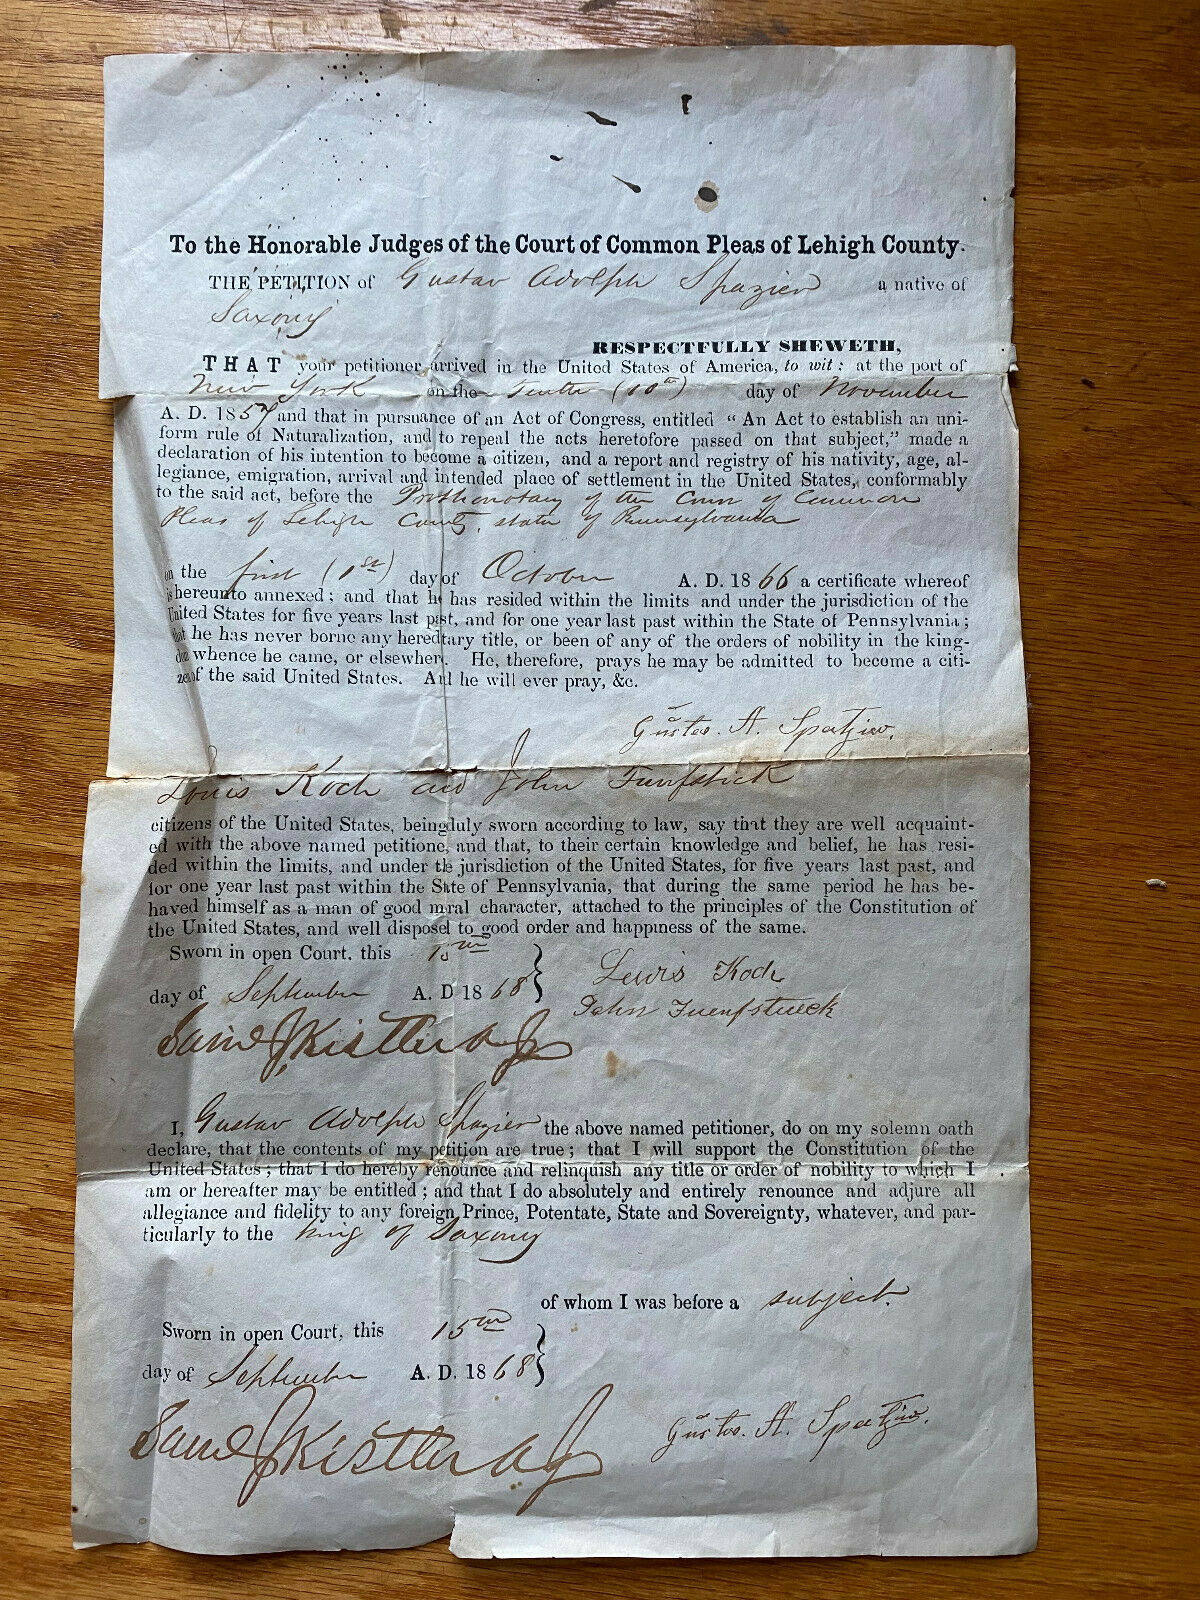 To the Honorable Judges of the Court of Common Pleas of Lehigh County.
THE PETITION of Gustav Adolph Spazier a native of
Saxony
RESPECTFULLY SHEWETH,
THAT your petitioner arrived in the United States of America, to wit: at the port of
New York on the Tenth (10th) day of November
A. D. 1857 and that in pursuance of an Act of Congress, entitled "An Act to establish an uni-
form rule of Naturalization, and to repeal the acts heretofore passed on that subject," made a
declaration of his intention to become a citizen, and a report and registry of his nativity, age, al-
legiance, emigration, arrival and intended place of settlement in the United States, conformably
to the said act, before the Prothonotary of the Court of Common
Pleas of Lehigh County, state of Pennsylvania
on the first (1st) day of October A. D. 1866 a certificate whereof
is hereunto annexed; and that he has resided within the limits and under the jurisdiction of the
United States for five years last past, and for one year last past within the State of Pennsylvania;
that he has never borne any heredtary title, or been of any of the orders of nobility in the king-
dom whence he came, or elsewhere. He, therefore, prays he may be admitted to become a citi-
zen of the said United States. And he will ever pray, &c.
Gustav. A. Spatzier.
Louis Koch and John Funfstick
citizens of the United States, being duly sworn according to law, say that they are well acquaint-
ed with the above named petitione, and that, to their certain knowledge and belief, he has resi-
ded within the limits, and under the jurisdiction of the United States, for five years last past, and
for one year last past within the State of Pennsylvania, that during the same period he has be-
haved himself as a man of good moral character, attached to the principles of the Constitution of
the United States, and well disposed to good order and happiness of the same.
Sworn in open Court, this 15th
day of September A. D 1868
Lewis Koch
John Fuenfstueck
Saml J Kistler A J
I, Gustav Adolph Spazier the above named petitioner, do on my solemn oath
declare, that the contents of my petition are true; that I will support the Constitution of the
United States; that I do hereby renounce and relinquish any title or order of nobility to which I
am or hereafter may be entitled; and that I do absolutely and entirely renounce and adjure all
allegiance and fidelity to any foreign Prince, Potentate, State and Sovereignty, whatever, and par-
ticularly to the King of Saxony
of whom I was before a subject.
Sworn in open Court, this 15th
day of September A. D. 1868
Saml J Kistler A J
Gustav. A. Spatzier.